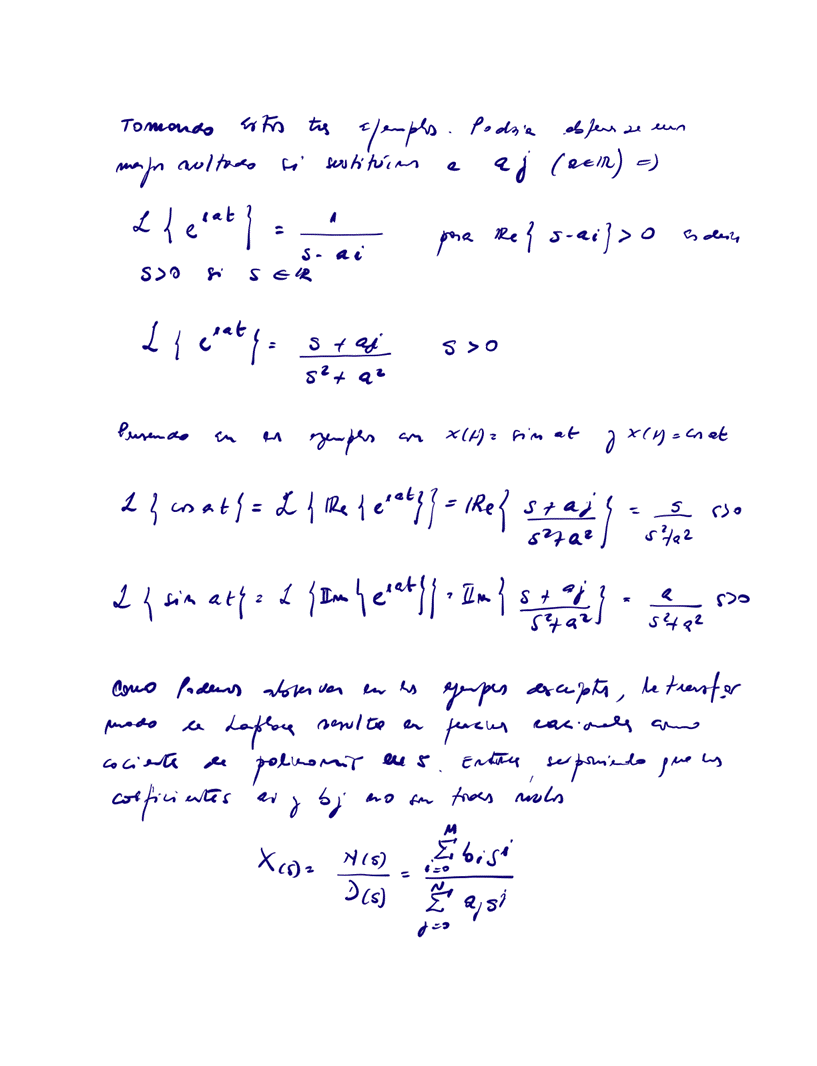 Tomando estos tres ejemplos. Podría obtenerse un
mejor resultado si sustituimos a aj (a∈ℝ) =>
ℒ{e^{iat}} = 1/(s-ai) para ℝe{s-ai}>0 es decir
s>0 si s∈ℝ
ℒ{e^{iat}} = (s+aj)/(s²+a²) s>0
Pensando en los ejemplos con x(t)= sin at y x(t)=cos at
ℒ{cos at} = ℒ{ℝe{e^{iat}}} = ℝe{(s+aj)/(s²+a²)} = s/(s²+a²) s>0
ℒ{sin at} = ℒ{𝕀m{e^{iat}}} = 𝕀m{(s+aj)/(s²+a²)} = a/(s²+a²) s>0
Como Podemos observar en los ejemplos descriptos, la transfor
mada de Laplace resulta en funciones racionales como
cociente de polinomios en s. Entonces, suponiendo que los
coeficientes ai y bj no son todos nulos
X(s) = N(s)/D(s) = \sum_{i=0}^{M} b_i s^i / \sum_{j=0}^{N} a_j s^j